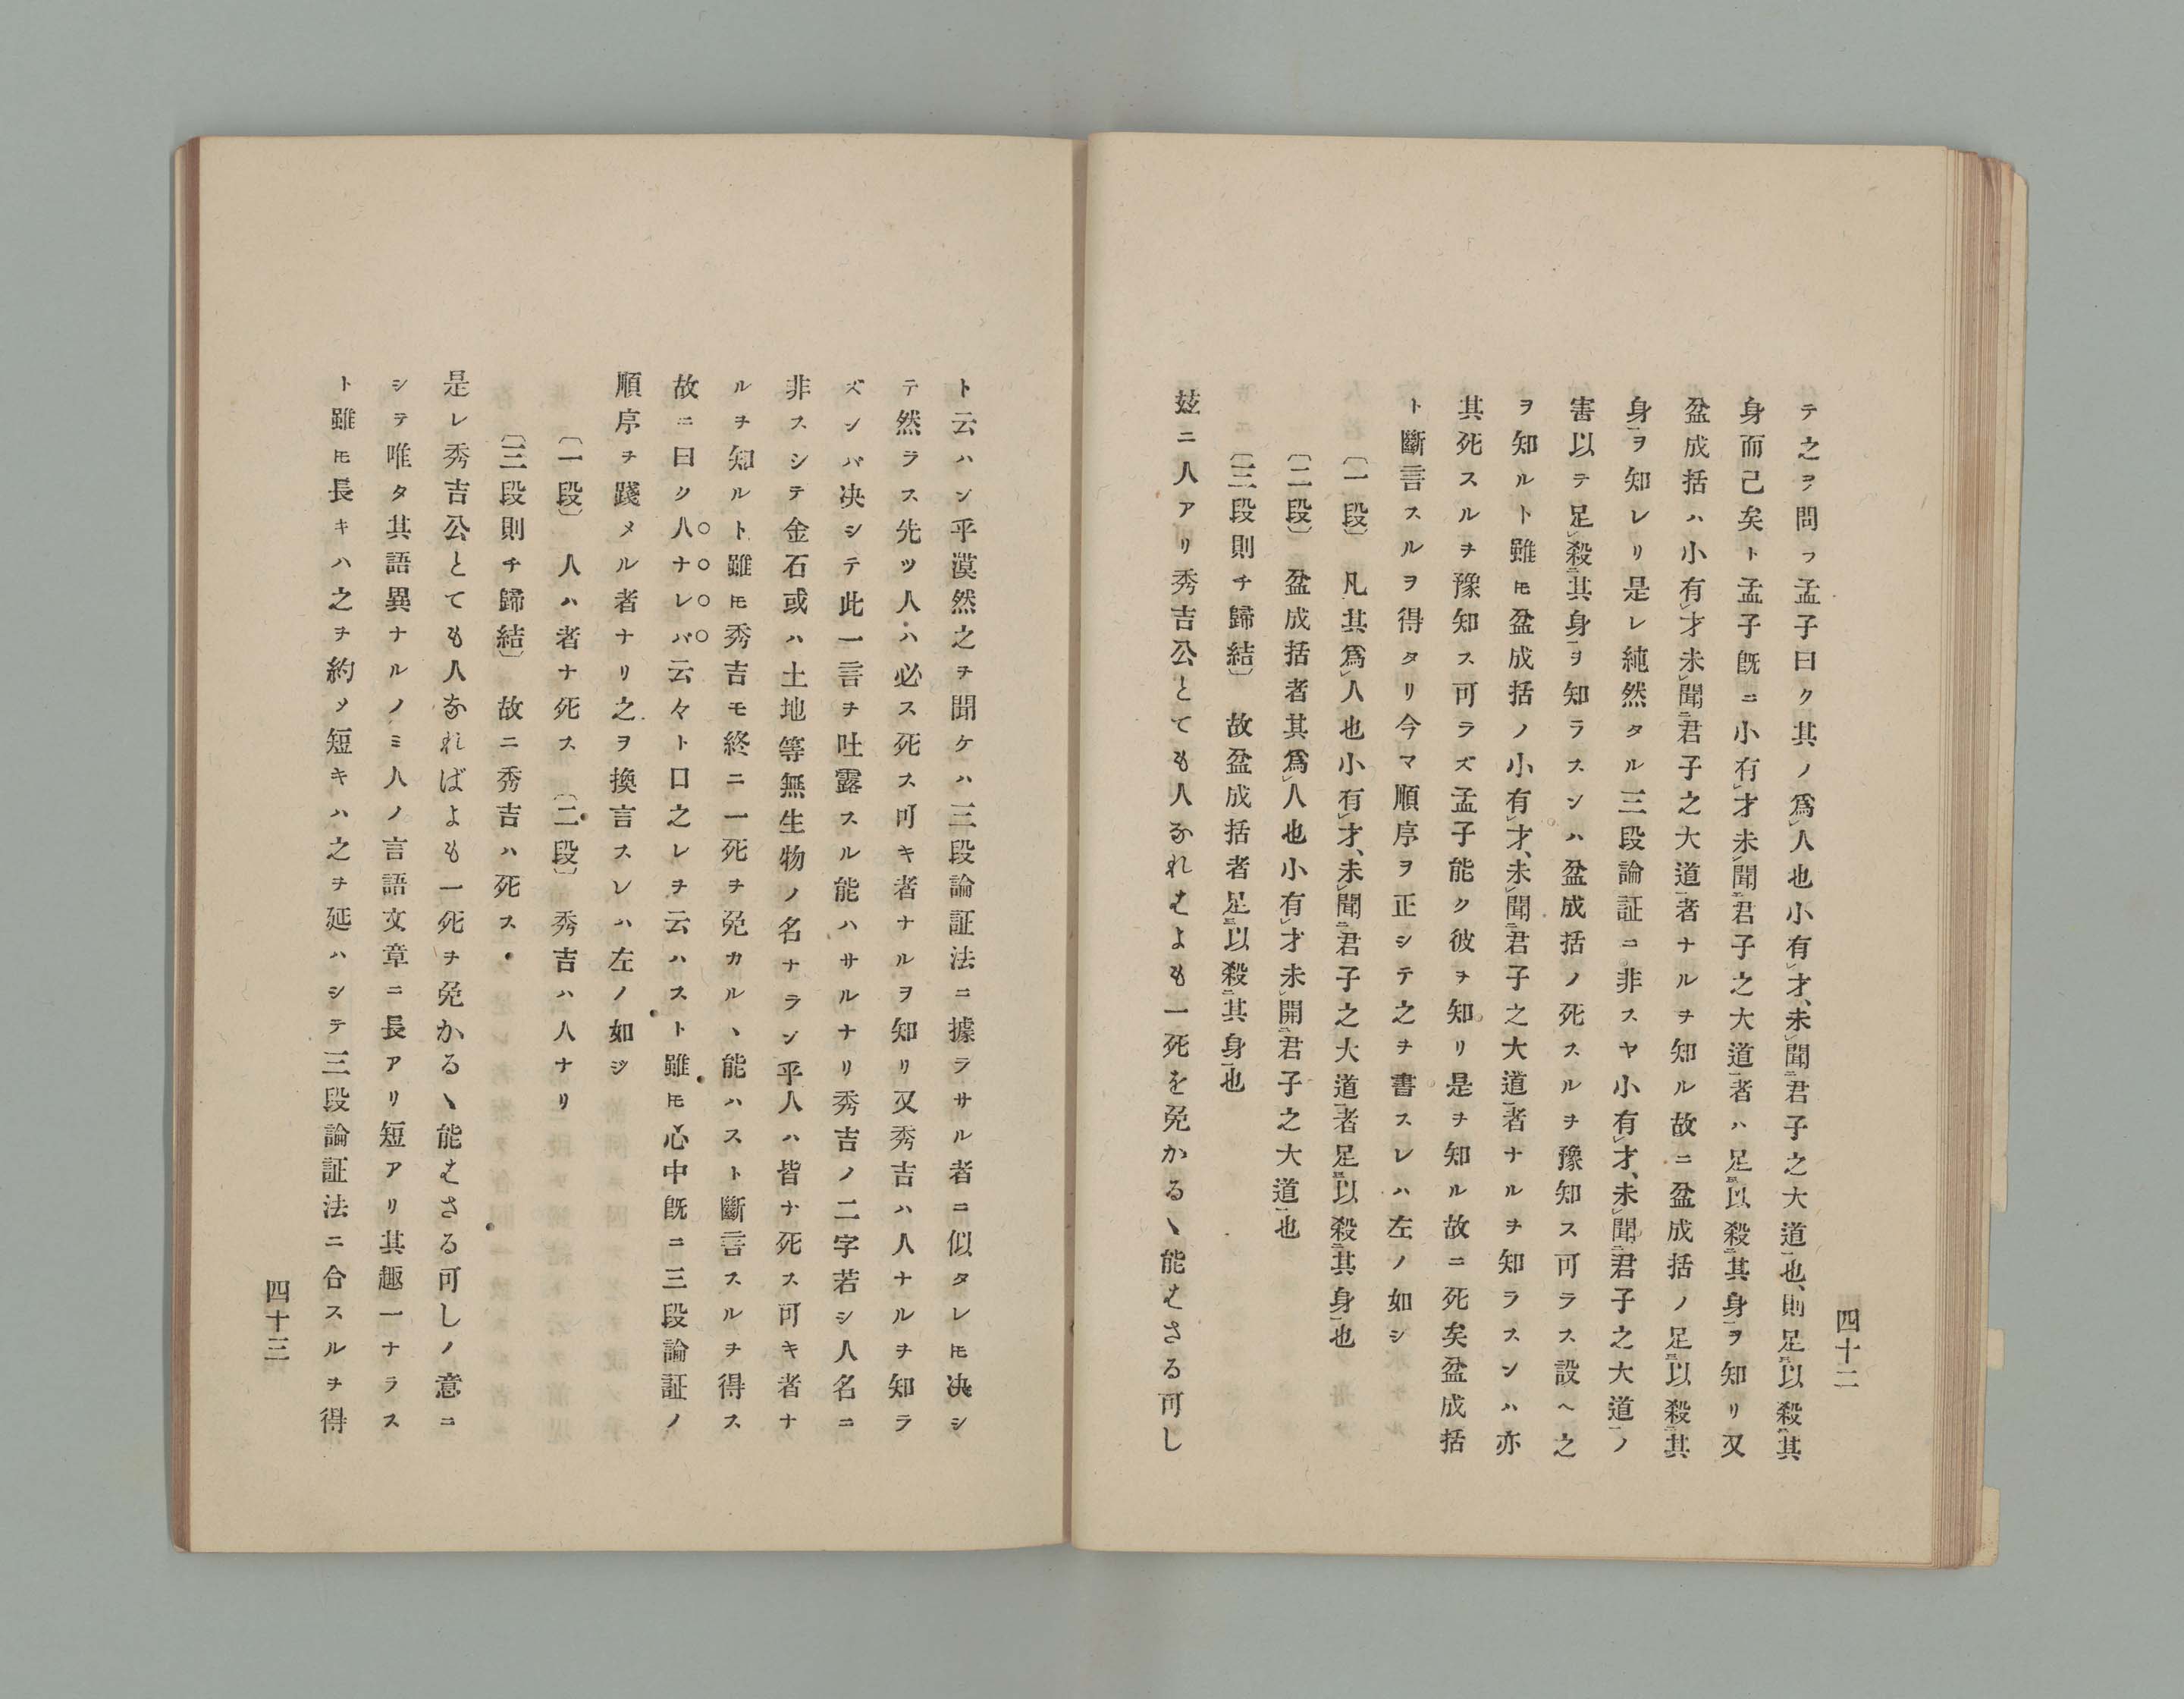 テ之ヲ問フ孟子曰ク其ノ爲レ人也小有レ才、未レ聞二君子之大道一也、則足三以殺二其
身而己矣ト孟子既ニ小有レ才未レ聞二君子之大道一者ハ足三以殺二其身一ヲ知リ又
盆成括ハ小有レ才未レ聞二君子之大道一者ナルヲ知ル故ニ盆成括ノ足三以殺二其
身一ヲ知レリ是レ純然タル三段論証ニ非スヤ小有レ才、未レ聞二君子之大道一ノ
害以テ足レ殺二其身一ヲ知ラスンハ盆成括ノ死スルヲ豫知ス可ラス設ヘ之
ヲ知ルト雖𪜈盆成括ノ小有レ才、未レ聞二君子之大道一者ナルヲ知ラスンハ亦
其死スルヲ豫知ス可ラズ孟子能ク彼ヲ知リ是ヲ知ル故ニ死矣盆成括
ト斷言スルヲ得タリ今マ順序ヲ正シテ之ヲ書スレハ左ノ如シ
〔一段〕凡其爲レ人也小有レ才、未レ聞二君子之大道一者足三以殺二其身一也
〔二段〕盆成括者其爲レ人也小有レ才未レ開二君子之大道一也
〔三段則チ歸結〕故盆成括者足三以殺二其身一也
玆ニ人アリ秀吉公とても人なれはよも一死を免かるゝ能はさる可し
四十二
ト云ハン乎漠然之ヲ聞ケハ三段論証法ニ據ラサル者ニ似タレ𪜈决シ
テ然ラス先ツ人ハ必ス死ス可キ者ナルヲ知リ又秀吉ハ人ナルヲ知ラ
ズンバ决シテ此一言ヲ吐露スル能ハサルナリ秀吉ノ二字若シ人名ニ
非スシテ金石或ハ土地等無生物ノ名ナラン乎人ハ皆ナ死ス可キ者ナ
ルヲ知ルト雖𪜈秀吉モ終ニ一死ヲ免カルヽ能ハスト斷言スルヲ得ス
故ニ曰ク人ナレバ云々ト口之レヲ云ハスト雖𪜈心中既ニ三段論証ノ
順序ヲ踐メル者ナリ之ヲ換言スレハ左ノ如シ
〔一段〕人ハ者ナ死ス〔二段〕秀吉ハ人ナリ
〔三段則チ歸結〕故ニ秀吉ハ死ス
是レ秀吉公とても人なればよも一死ヲ免かるゝ能はさる可しノ意ニ
シテ唯タ其語異ナルノミ人ノ言語文章ニ長アリ短アリ其趣一ナラス
ト雖𪜈長キハ之ヲ約メ短キハ之ヲ延ハシテ三段論証法ニ合スルヲ得
四十三